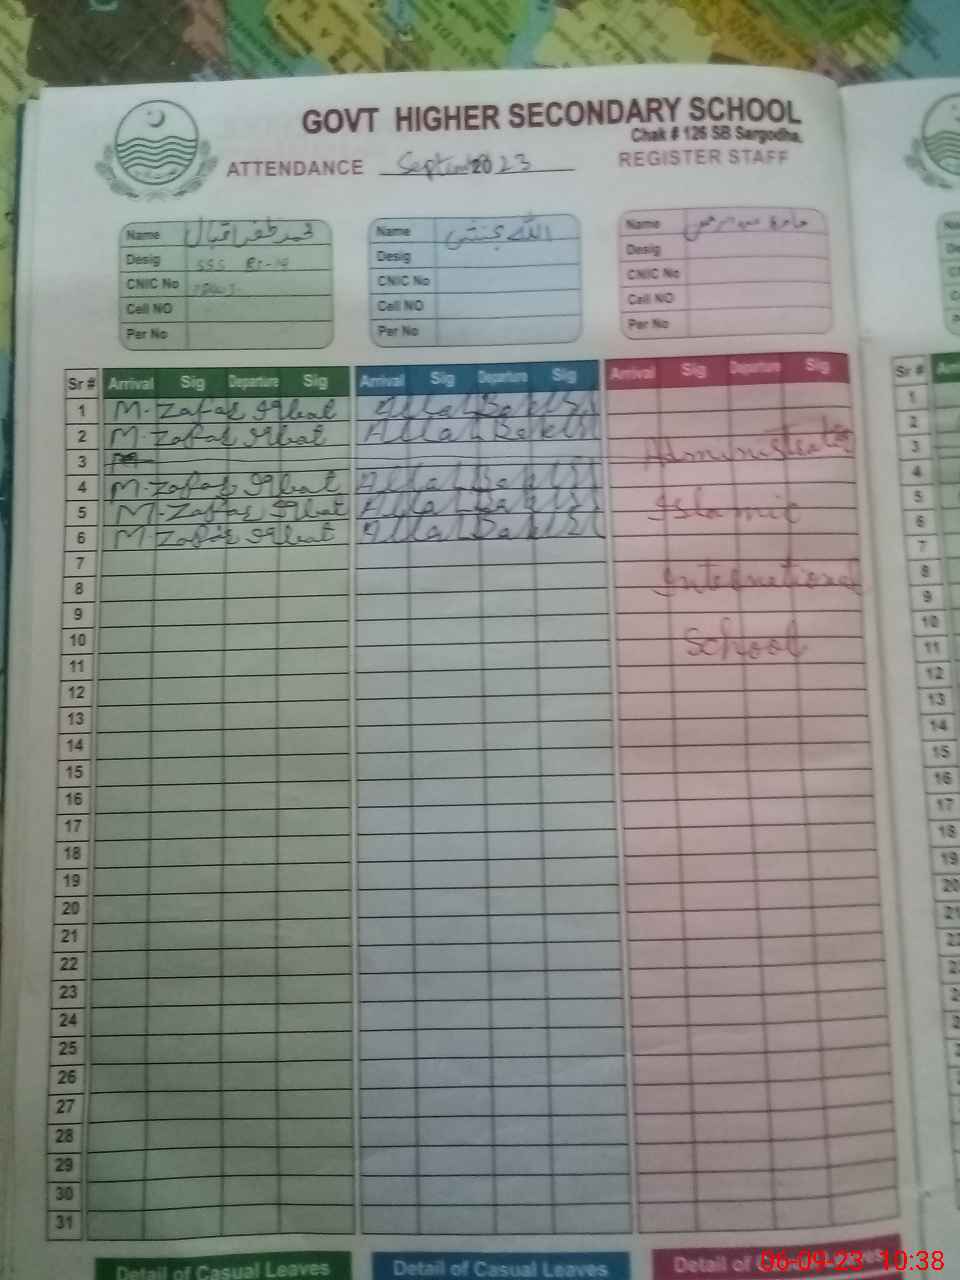 GOVT HIGHER SECONDARY SCHOOL
Chak # 126 SB Sargodha.
ATTENDANCE 2023 REGISTER STAFF
Name محمد ظفر اقبال
Desig SSS
CNIC No
Cell NO
Per No
Name اللہ بخش
Desig
CNIC No
Cell NO
Per No
Name
Desig
CNIC No
Cell NO
Per No
Sr # Arrival Sig Departure Sig Arrival Sig Departure Sig Arrival Sig Departure Sig
1 M. Zafar Iqbal Allah Bakhsh
2 M. Zafar Iqbal Allah Bakhsh
3
4 M. Zafar Iqbal Allah Bakhsh
5 M. Zafar Iqbal Allah Bakhsh
6 M. Zafar Iqbal Allah Bakhsh
Administrator
Islamic
International
School
7
8
9
10
11
12
13
14
15
16
17
18
19
20
21
22
23
24
25
26
27
28
29
30
31
Detail of Casual Leaves Detail of Casual Leaves Detail of Casual Leaves
Sr #
1
2
3
4
5
6
7
8
9
10
11
12
13
14
15
16
17
18
19
20
06-09-23 10:38